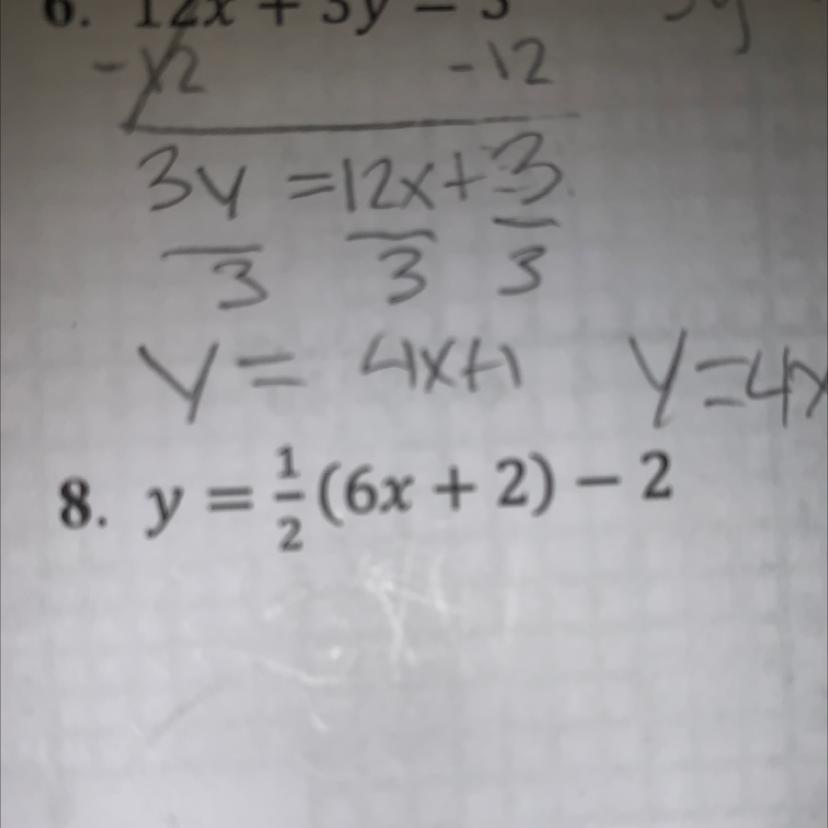 6. 12x + 3y = 3
-12 -12
3y = 12x + 3
3 3 3
y = 4x+1 y = 4x
8. y = \frac{1}{2}(6x + 2) − 2